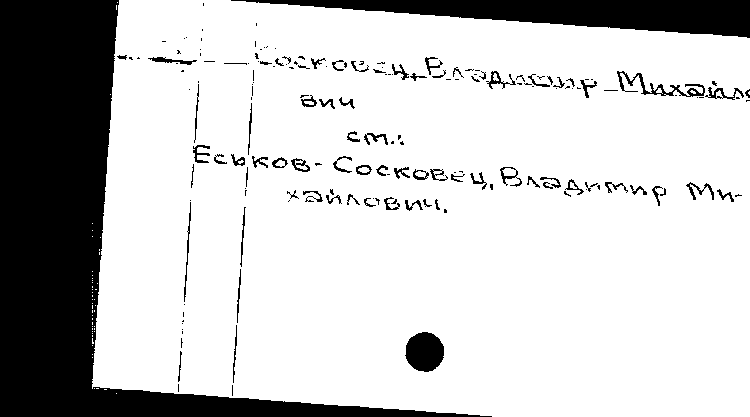 Сосковец, Владимир Михайло
вич
см.:
Еськов-Сосковец, Владимир Ми-
хайлович.